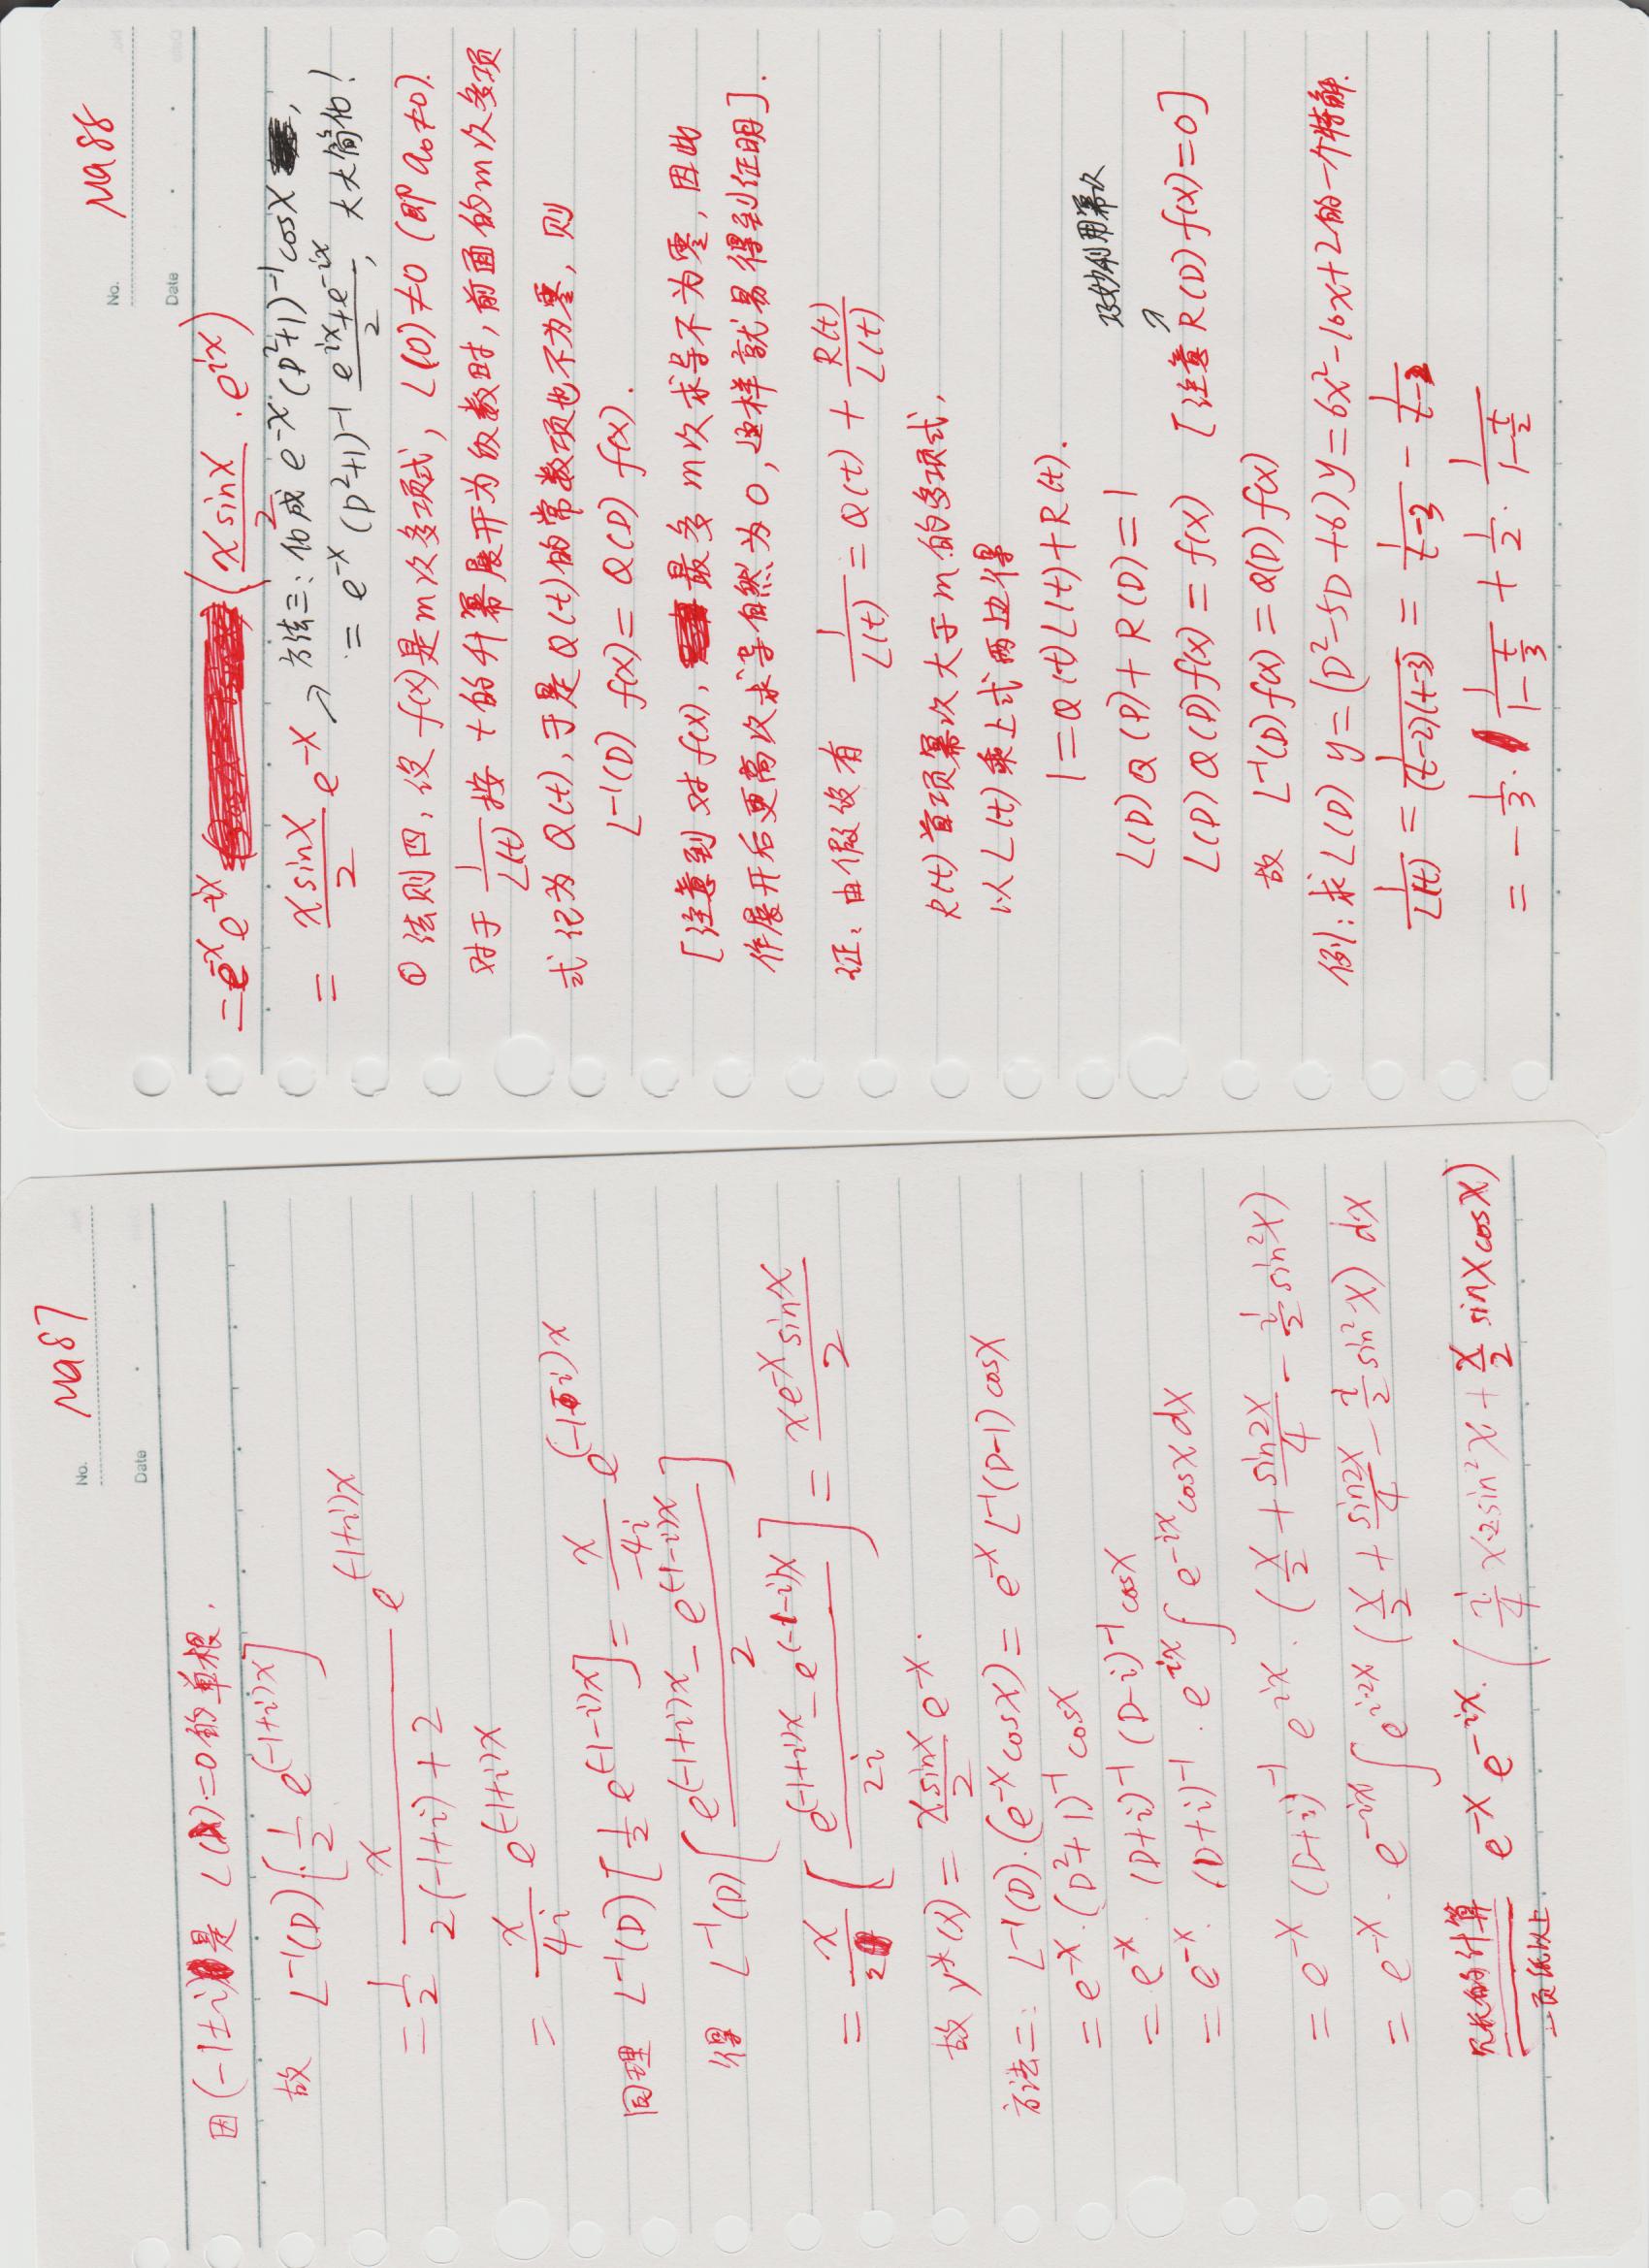 No. Ma87
Date
因(-1±i)是 L(λ)=0的单根.
故 L⁻¹(D)[½ e^{(-1+i)x}]
= 1/2 x/(2(-1+i)+2) e^{(-1+i)x}
= x/(4i) e^{(-1+i)x}
同理 L⁻¹(D)[½ e^{(-1-i)x}] = x/(-4i) e^{(-1-i)x}
得 L⁻¹(D)[(e^{(-1+i)x} - e^{(-1-i)x})/2]
= x/2 [(e^{(-1+i)x} - e^{(-1-i)x})/(2i)] = (xe^{-x} sinx)/2
故 y*(x) = (x sinx)/2 e^{-x}.
方法二: L⁻¹(D)·(e^{-x}cosx) = e^{-x} L⁻¹(D-1) cosx
= e^{-x}·(D²+1)⁻¹ cosx
= e^{-x}·(D+i)⁻¹ (D-i)⁻¹ cosx
= e^{-x}·(D+i)⁻¹·e^{ix}∫e^{-ix}cosx dx
= e^{-x} (D+i)⁻¹ e^{ix}·(x/2 + sin2x/4 - i/2 sin²x)
= e^{-x}·e^{-ix}∫e^{i·2x}(x/2 + sin2x/4 - i/2 sin²x) dx
冗长的计算 e^{-x} e^{-ix}·(i/4 x·2sin²x + x/2 sinxcosx)
一页纸以上
No. Ma88
Date
= e^{-x} e^{-ix} (x sinx/2 · e^{ix})
= (x sinx)/2 e^{-x} → 方法三: 化成 e^{-x}(D²+1)⁻¹cosx,
= e^{-x}(D²+1)⁻¹ (e^{ix}+e^{-ix})/2, 大大简化!
① 法则四, 设 f(x)是m次多项式, L(0)≠0 (即 a₀≠0).
对于 1/L(t) 按 t的升幂展开为级数时, 前面的m次多项
式记为 Q(t), 于是Q(t)的常数项也不为零, 则
L⁻¹(D) f(x) = Q(D) f(x).
[注意到对f(x), 最多 m次求导不为零, 因此
作展开后更高次求导自然为0, 这样就易得到证明].
证: 由假设有 1/L(t) = Q(t) + R(t)/L(t)
R(t)首项幂次大于m的多项式,
以L(t)乘上式两边得
1 = Q(t)L(t)+R(t).
巧妙利用幂次
L(D)Q(D)+R(D)=1
L(D)Q(D)f(x) = f(x) [注意R(D)f(x)=0]
故 L⁻¹(D)f(x) = Q(D)f(x)
例: 求L(D) y = (D²-5D+6)y = 6x²-10x+2的一个特解.
1/L(t) = 1/((t-2)(t-3)) = 1/(t-3) - 1/(t-2)
= -1/3 · 1/(1-t/3) + 1/2 · 1/(1-t/2)